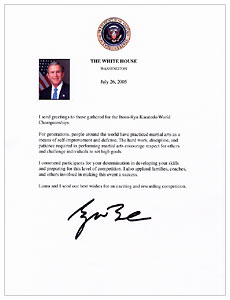 THE WHITE HOUSE
WASHINGTON
July 26, 2005
I send greetings to those gathered for the Karatedo World
Championships.
For generations, people around the world have practiced martial arts as a
means of self-improvement and defense. The hard work, discipline, and
patience required in performing martial arts encourage respect for others
and challenge individuals to set high goals.
I commend participants for your determination in developing your skills
and preparing for this level of competition. I also applaud families, coaches,
and others involved in making this event a success.
Laura and I send our best wishes for an exciting and rewarding competition.